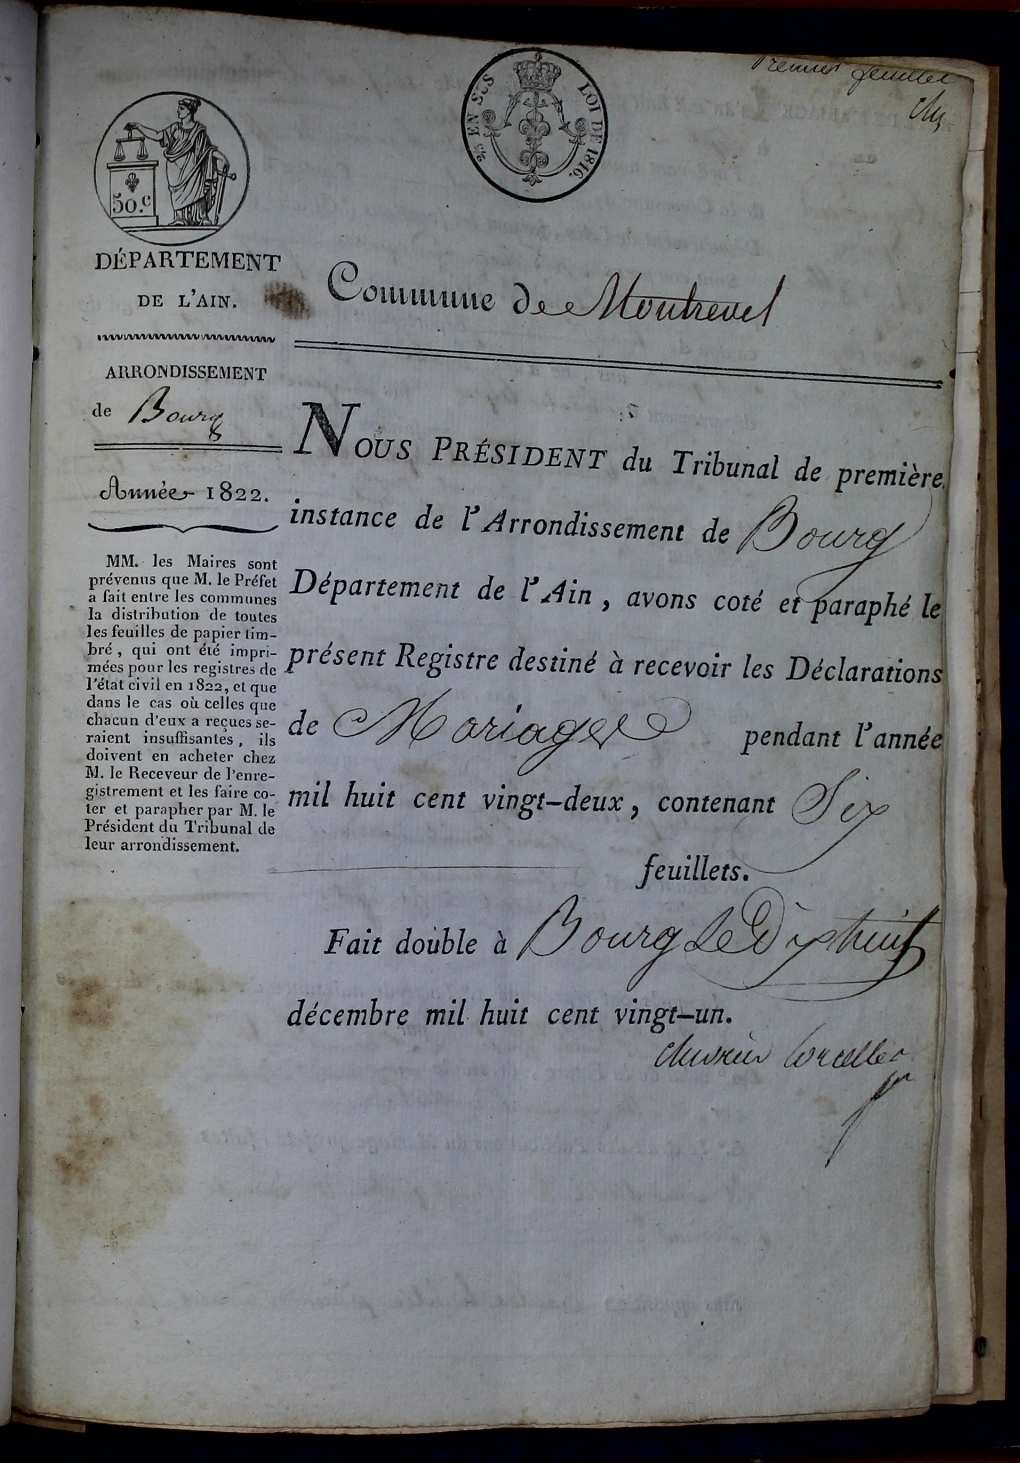 Premier feuillet
50.c
25 EN SUS
LOI DE 1816.
DÉPARTEMENT
DE L'AIN.
ARRONDISSEMENT
de Bourg
Année 1822.
MM. les Maires sont
prévenus que M. le Préfet
a fait entre les communes
la distribution de toutes
les feuilles de papier tim-
bré, qui ont été impri-
mées pour les registres de
l'état civil en 1822, et que
dans le cas où celles que
chacun d'eux a reçues se-
raient insuffisantes, ils
doivent en acheter chez
M. le Receveur de l'enre-
gistrement et les faire co-
ter et parapher par M. le
Président du Tribunal de
leur arrondissement.
Commune de Montrevel
NOUS PRÉSIDENT du Tribunal de première
instance de l'Arrondissement de Bourg
Département de l'Ain, avons coté et paraphé le
présent Registre destiné à recevoir les Déclarations
de Mariages pendant l'année
mil huit cent vingt-deux, contenant Six
feuillets.
Fait double à Bourg Le Dix huit
décembre mil huit cent vingt-un.